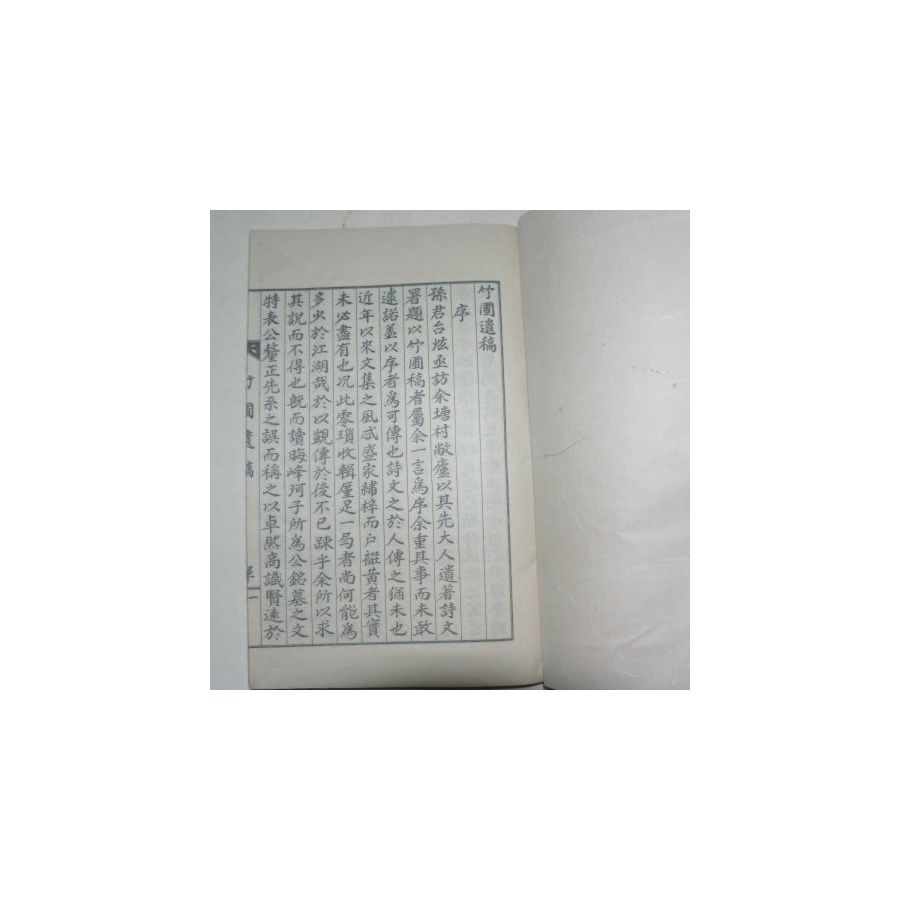 竹圃遺稿
序
孫君台炫亟訪余塘村敝廬以其先大人遺著詩文
署題以竹圃稿者屬余一言爲序余重其事而未敢
遽諾盖以序者爲可傳也詩文之於人傳之猶未也
近年以來文集之風忒盛家繡梓而户褫黃者其實
未必盡有也况此零瑣收輯厪足一局者尚何能爲
多少於江湖哉於以觀傳於後不已踈乎余所以求
其說而不得也旣而讀晦峰河子所爲公銘墓之文
特表公釐正先系之誤而稱之以卓然高識賢遠於
竹圃遺稿
序
一